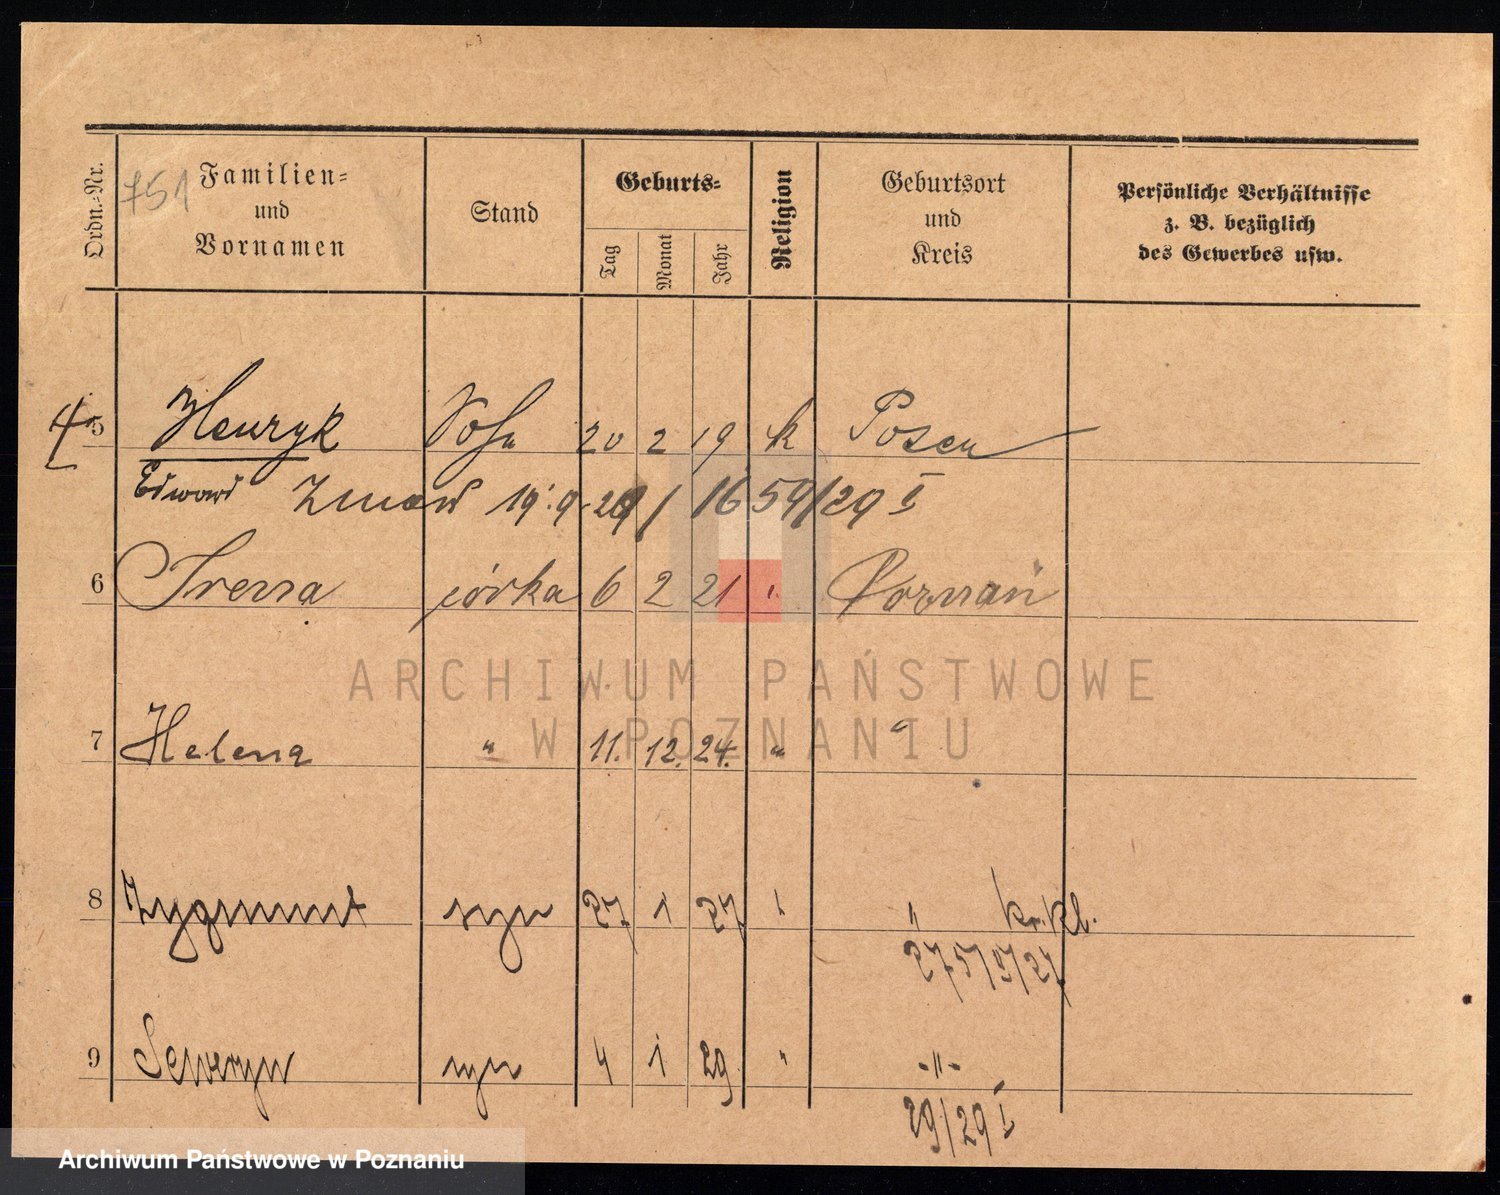 Ordn.-Nr.
751
Familien-
und
Vornamen
Stand
Geburts-
Tag
Monat
Jahr
Religion
Geburtsort
und
Kreis
Persönliche Verhältnisse
z. B. bezüglich
des Gewerbes usw.
5 Henryk Sohn 20 2 19 k Posen
Edward Zmarł 19.9.29 / 1659/29 I
6 Irena córka 6 2 21 " Poznań
7 Helena " 11. 12. 24. " "
8 Zygmunt syn 27 1 27 " " kr. kl.
275/I/27
9 Seweryn syn 4 1 29 " -"-
29/29 I
ARCHIWUM PAŃSTWOWE
W POZNANIU
Archiwum Państwowe w Poznaniu